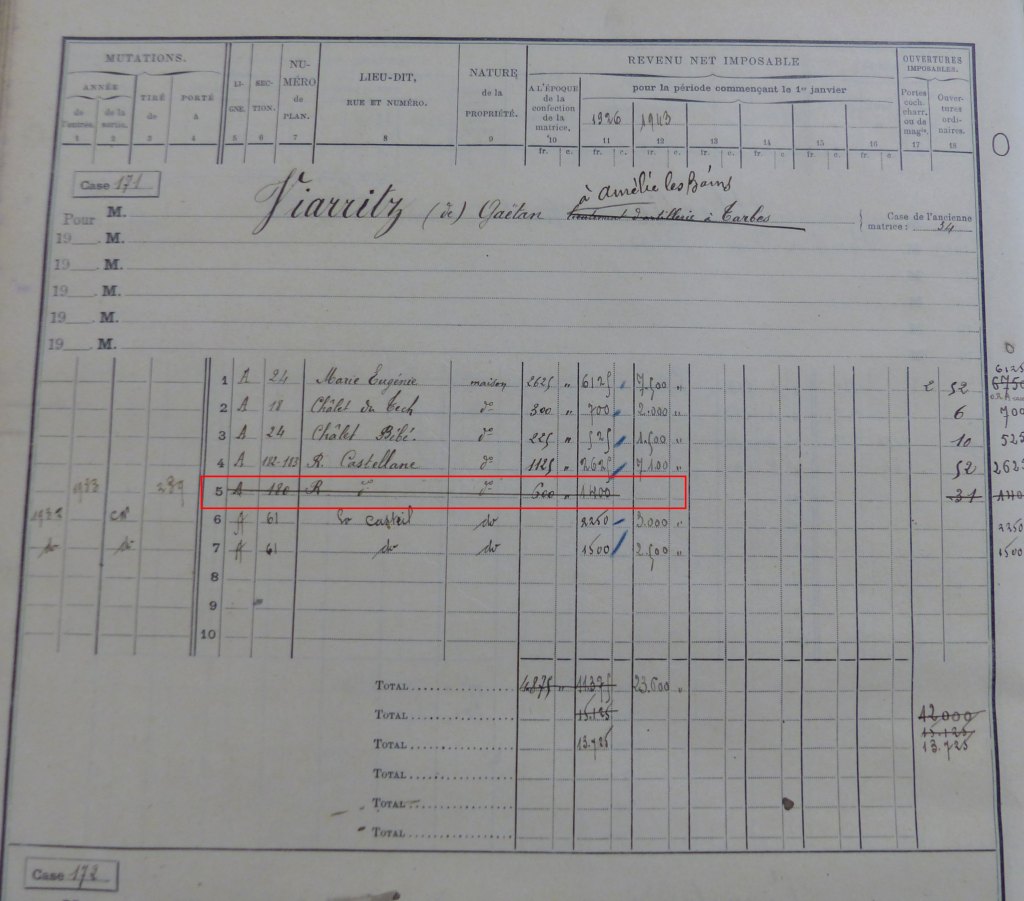 MUTATIONS.
ANNÉE
de l'entrée. de la sortie. TIRÉ de PORTÉ à
1 2 3 4
LIGNE. SECTION. NUMÉRO de PLAN. LIEU-DIT, RUE ET NUMÉRO. NATURE de la PROPRIÉTÉ.
5 6 7 8 9
REVENU NET IMPOSABLE
A L'ÉPOQUE de la confection de la matrice,
pour la période commençant le 1er janvier
1926 1943
10 11 12 13 14 15 16
fr. c. fr. c. fr. c. fr. c. fr. c. fr. c. fr. c.
OUVERTURES IMPOSABLES.
Portes coch. charr. ou de magis. Ouvertures ordinaires.
17 18
Case 171
à Amélie les Bains
Pour M. Viarritz (de) Gaëtan lieutenant d'artillerie à Tarbes
Case de l'ancienne matrice : 34
19 . M.
19 . M.
19 . M.
19 . M.
19 . M.
1 A 24 Marie Eugénie maison 2625 " 6125 7.500 " 2 52 6125
6750
2 A 18 Châlet du Tech do 300 " 700 2.000 " 6 700
3 A 24 Châlet Bébé. do 225 " 525 1.500 " 10 525
4 A 182-183 R. Castellane do 1125 " 2625 7.100 " 52 262
1933 289 5 A 180 R do do 600 " 1400 31
6 A 61 do 2250 3.000 " 2250
do do 7 A 61 do do 1500 2.500 " 1500
8
9
10
TOTAL 4.875 " 11.375 23.600 "
TOTAL 15.125 12000
15.125
TOTAL 13.725 13.725
TOTAL
TOTAL
TOTAL
Case 172